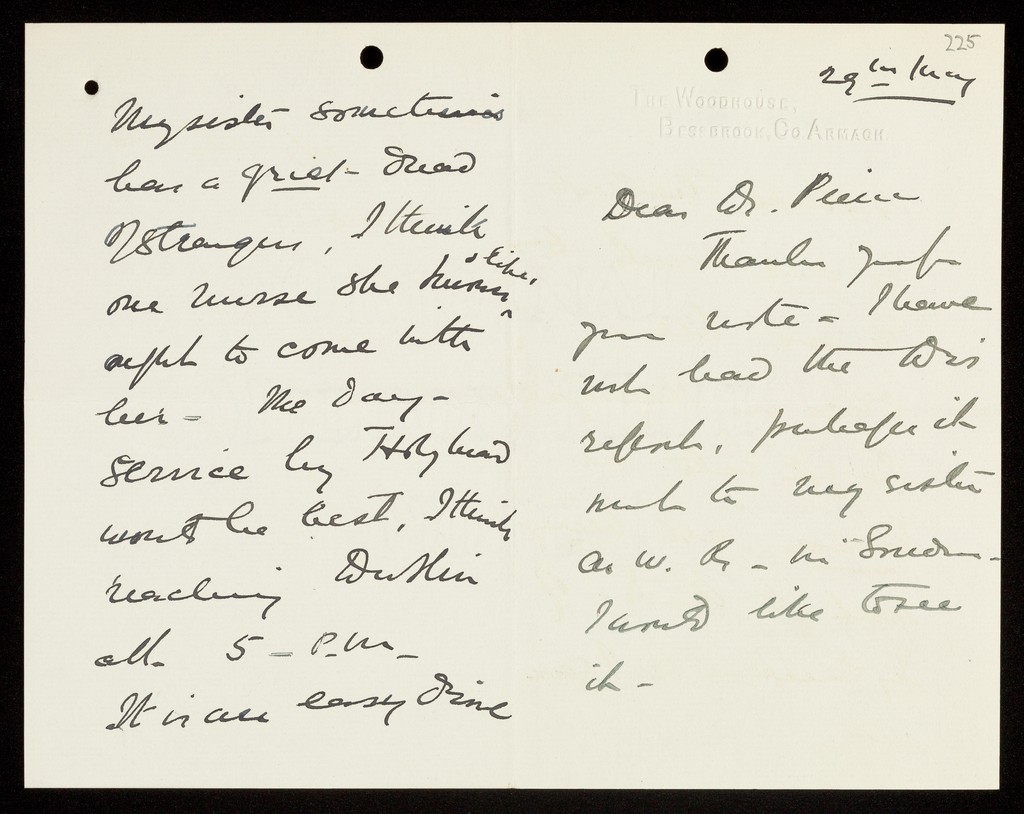 225
29th May
THE WOODHOUSE,
BESSBROOK, CO. ARMAGH.
Dear Dr. Pierce
Thanks you for
your note - I have
not had the Drs
report, perhaps it
went to my sister
as W. R. - in London -
I would like to see
it -
My sister sometimes
has a great dread
of strangers, I think
one nurse she knows & likes,
ought to come with
her - The Day -
Service by Holyhead
would be best, I think
reaching Dublin
at 5 - P.M -
It is an easy drive